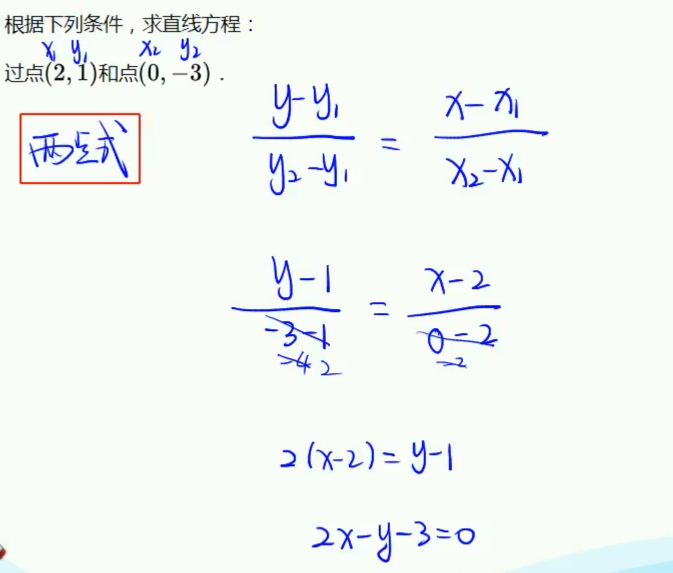 根据下列条件，求直线方程：
x₁ y₁ x₂ y₂
过点(2, 1)和点(0, −3)．
两点式
(y-y₁)/(y₂-y₁) = (x-x₁)/(x₂-x₁)
y-1 = x-2
-3-1 0-2
-4 2 -2
2(x-2)=y-1
2x-y-3=0